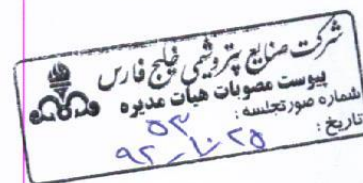 شرکت صنایع پتروشیمی خلیج فارس
پیوست مصوبات هیات مدیره
شماره صورتجلسه : ۵۳
تاریخ : ۹۲-۱۰-۲۵